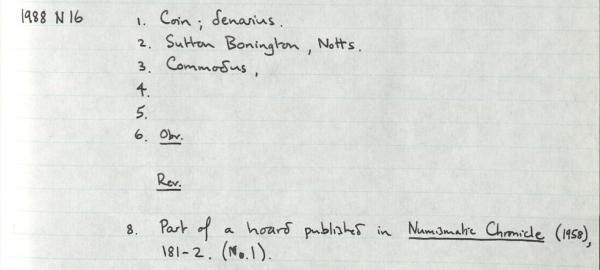 1988 N 16 1. Coin ; denarius.
2. Sutton Bonington, Notts.
3. Commodus,
4.
5.
6. Obv.
Rev.
8. Part of a hoard published in Numismatic Chronicle (1958),
181-2. (No.1).